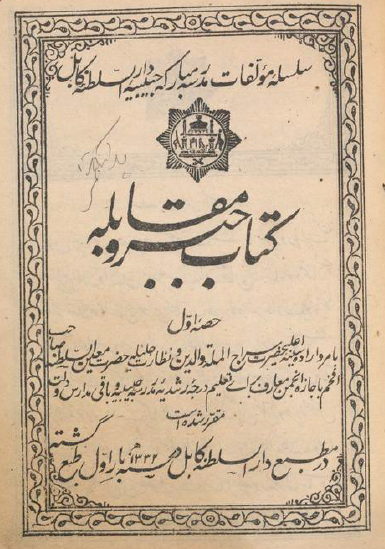 سلسله مؤلفات مدرسه مبارکه حبیبیه دار السلطنه کابل
کتاب جبر و مقابله
حصه اول
بامر و اراده سنیه اعلیحضرت سراج الملة والدین و نظارت جلیله حضرت معین السلطنه صاحب
افخم با جازه انجمن معارف برای تعلیم درجه رشدیه مدرسه حبیبیه و باقی مدارس دولت
مقرر شده است
در مطبع دار السلطنه کابل سنه ۱۳۳۲ بار اول طبع گشته